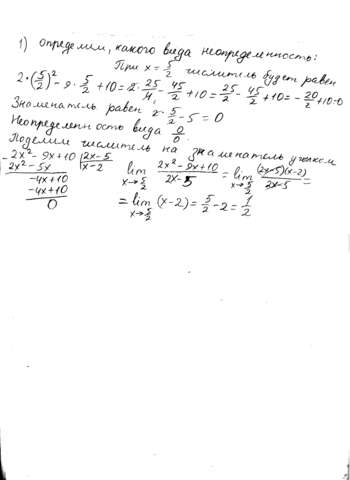 1) Определим, какого вида неопределенность:
При x = 5/2 числитель будет равен
2·(5/2)² - 9·5/2 + 10 = 2·25/4 - 45/2 + 10 = 25/2 - 45/2 + 10 = -20/2 + 10 = 0
Знаменатель равен 2·5/2 - 5 = 0
Неопределенность вида 0/0
Поделим числитель на знаменатель уголком
2x² - 9x + 10 | 2x - 5
2x² - 5x | x - 2
-4x + 10
-4x + 10
0
lim x→5/2 (2x² - 9x + 10)/(2x - 5) = lim x→5/2 (2x-5)(x-2)/(2x-5) =
= lim x→5/2 (x-2) = 5/2 - 2 = 1/2